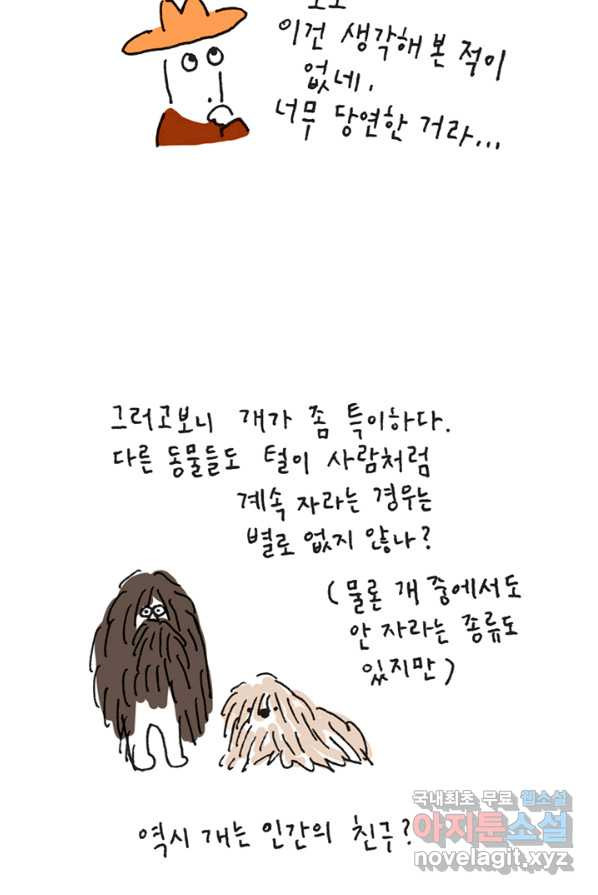 이건 생각해 본 적이
없네,
너무 당연한 거라...
그러고보니 개가 좀 특이하다.
다른 동물들도 털이 사람처럼
계속 자라는 경우는
별로 없지 않나?
(물론 개 중에서도
안 자라는 종류도
있지만)
역시 개는 인간의 친구?
국내최초 무료 웹소설
아지툰소설
novelagit.xyz